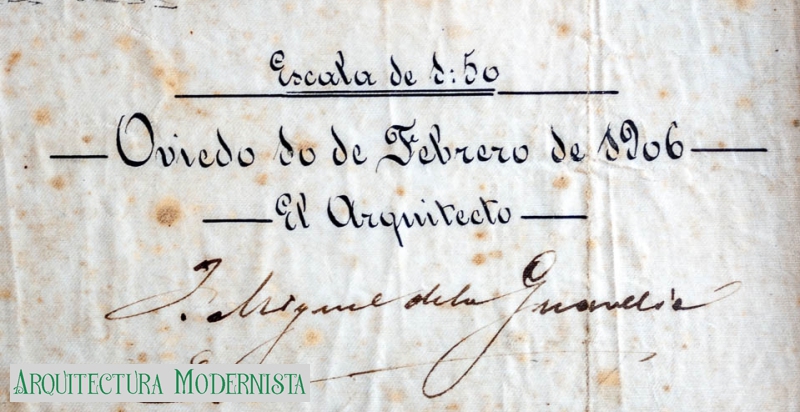 Escala de 1:50
Oviedo 10 de Febrero de 1906
El Arquitecto
J. Miguel de la Guardia
ARQUITECTURA MODERNISTA